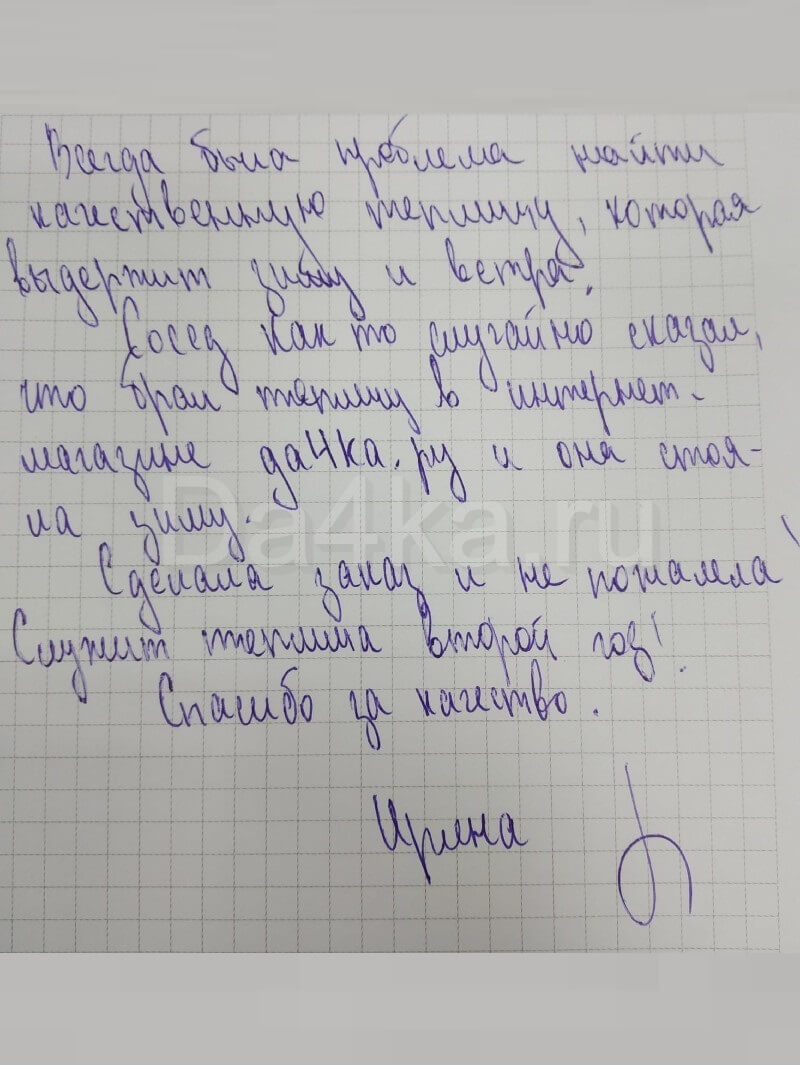 Всегда была проблема найти
качественную теплицу, которая
выдержит зиму и ветра.
Сосед как то случайно сказал,
что брал теплицу в интернет-
магазине да4ка.ру и она стоя-
ла зиму.
Da4ka.ru
Сделала заказ и не пожалела!
Служит теплица второй год!
Спасибо за качество.
Ирина